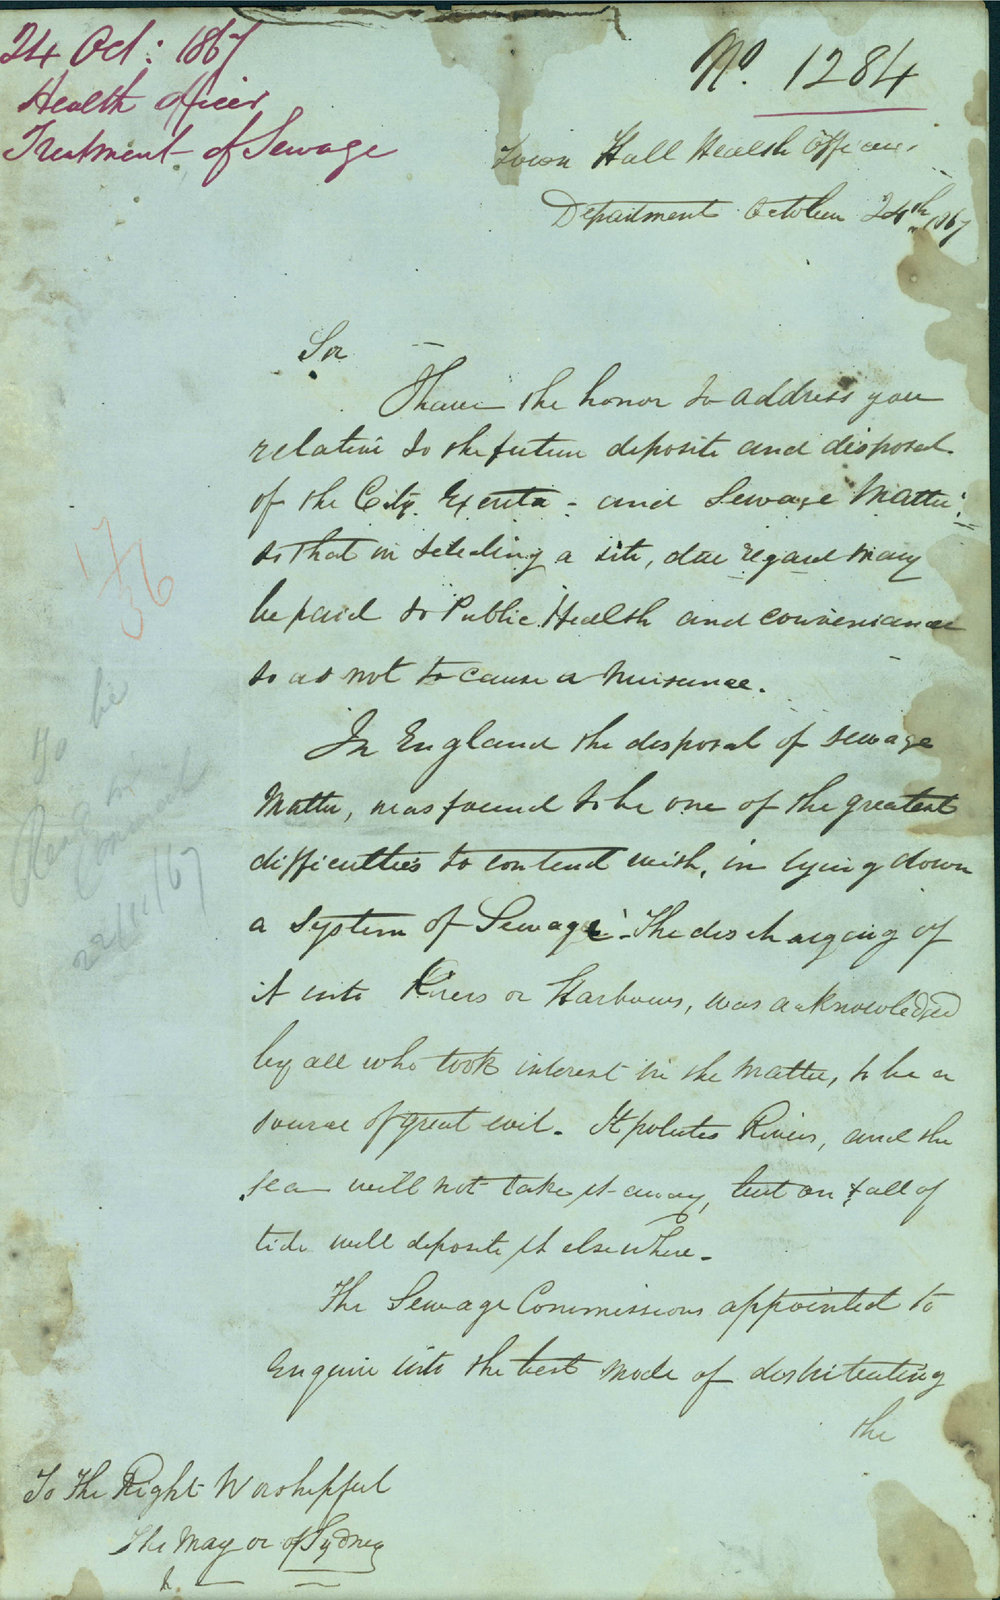 24 Oct: 1867
Health officer
Treatment of Sewage
No. 1284
Town Hall Health Officers
Department October 24th 1867
Sir
I have the honor to address you
relative to the future deposite and disposal
of the City Excreta - and Sewage Matter;
so that in selecting a site, due regard may
be paid to Public Health and convenience
so as not to cause a nuisance.
In England the disposal of sewage
Matter, was found to be one of the greatest
difficulties to contend with, in lying down
a system of Sewage. The discharging of
it into Rivers or Harbours, was acknowledged
by all who took interest in the matter, to be a
source of great evil. It polutes Rivers, and the
sea will not take it away, but on fall of
tide will deposite it elsewhere.
The Sewage Commissions appointed to
Enquire into the best mode of distributing
the
To The Right Worshipful
The Mayor of Sydney
176
To be
Read in
Council
22/11/67